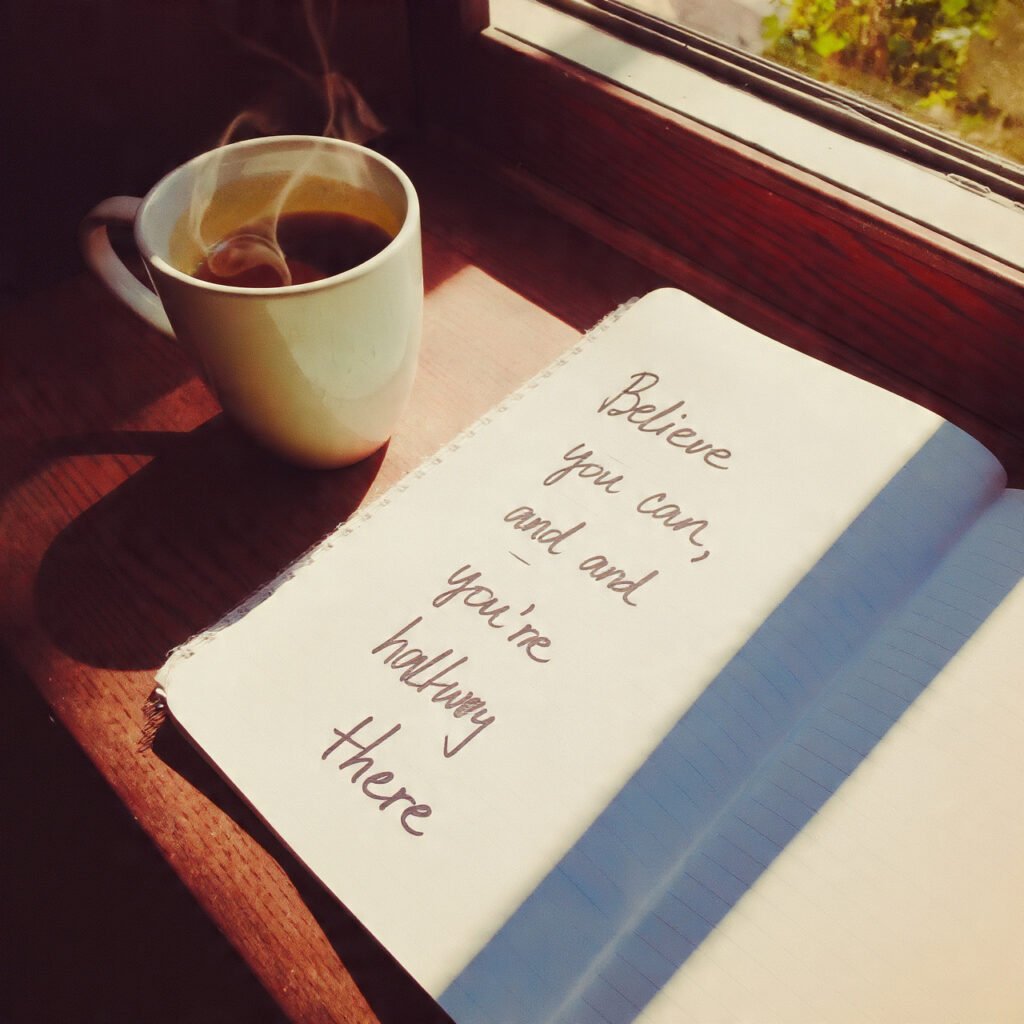 Believe
you can,
and and
you're
halfway
there